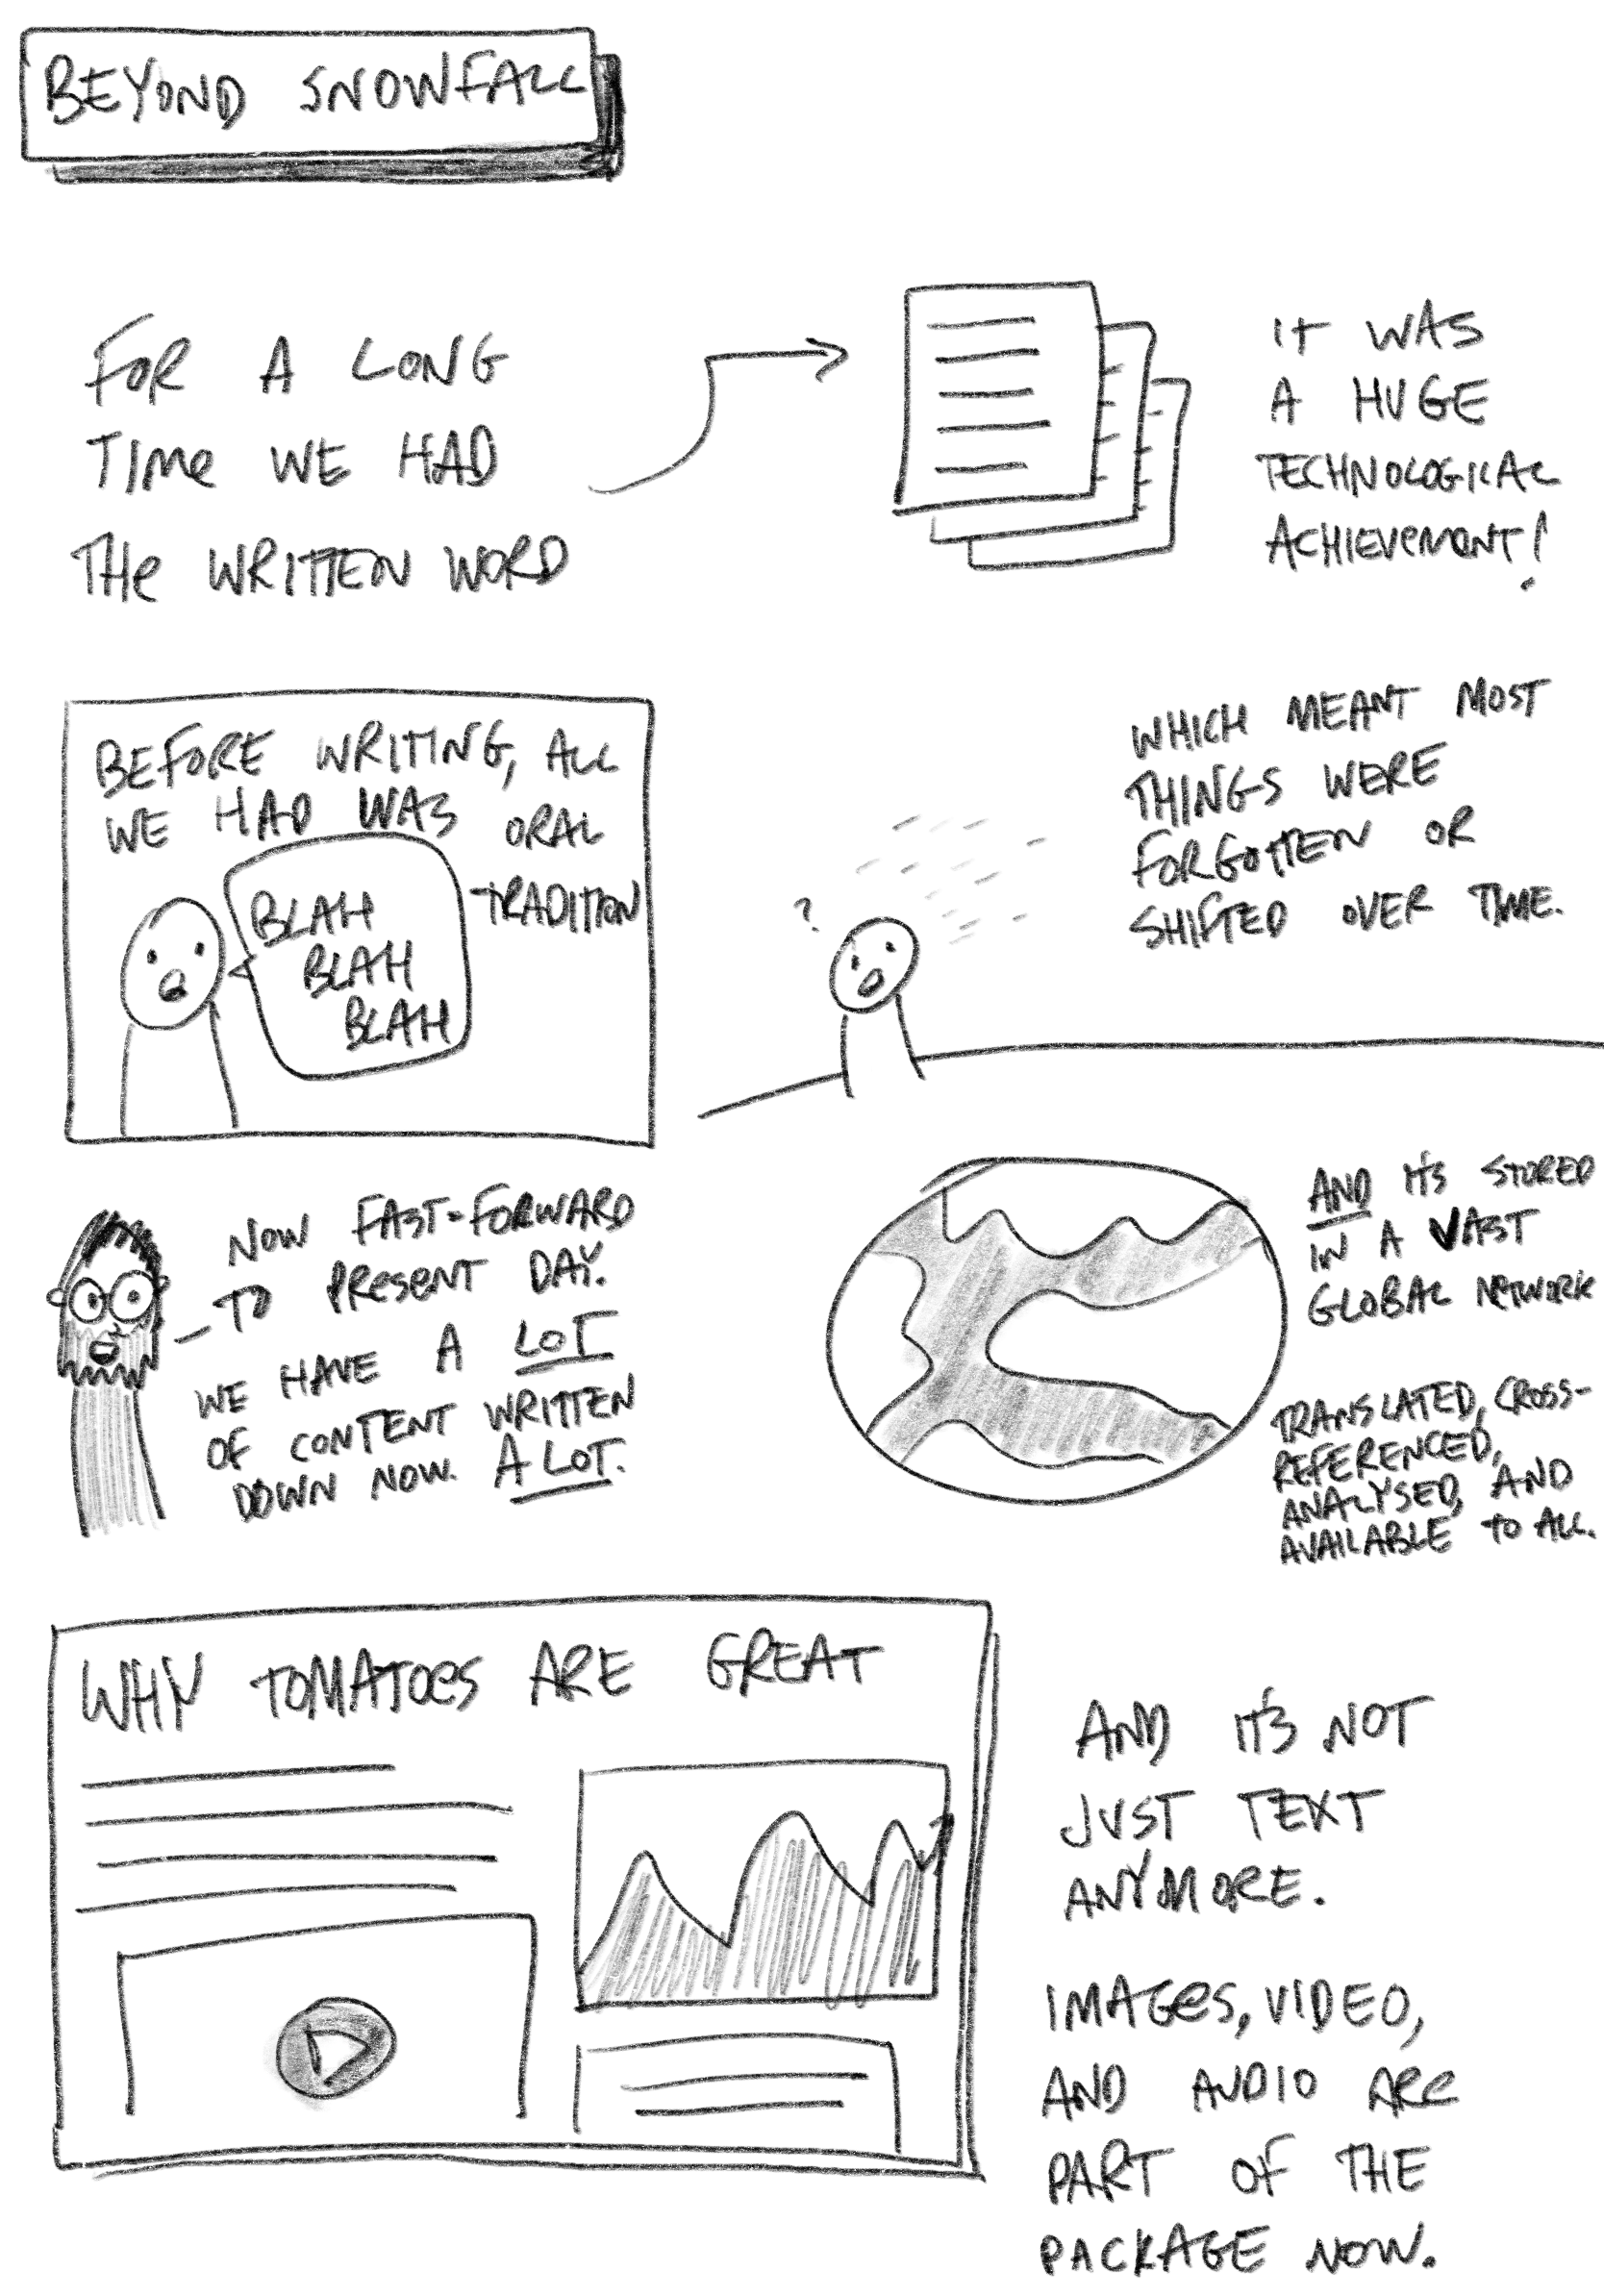 BEYOND SNOWFALL
FOR A LONG
TIME WE HAD
THE WRITTEN WORD
IT WAS
A HUGE
TECHNOLOGICAL
ACHIEVEMENT!
BEFORE WRITING, ALL
WE HAD WAS ORAL
TRADITION
BLAH
BLAH
BLAH
?
WHICH MEANT MOST
THINGS WERE
FORGOTTEN OR
SHIFTED OVER TIME.
NOW FAST-FORWARD
TO PRESENT DAY.
WE HAVE A LOT
OF CONTENT WRITTEN
DOWN NOW. A LOT.
AND IT'S STORED
IN A VAST
GLOBAL NETWORK
TRANSLATED, CROSS-
REFERENCED,
ANALYSED, AND
AVAILABLE TO ALL.
WHY TOMATOES ARE GREAT
AND IT'S NOT
JUST TEXT
ANYMORE.
IMAGES, VIDEO,
AND AUDIO ARE
PART OF THE
PACKAGE NOW.